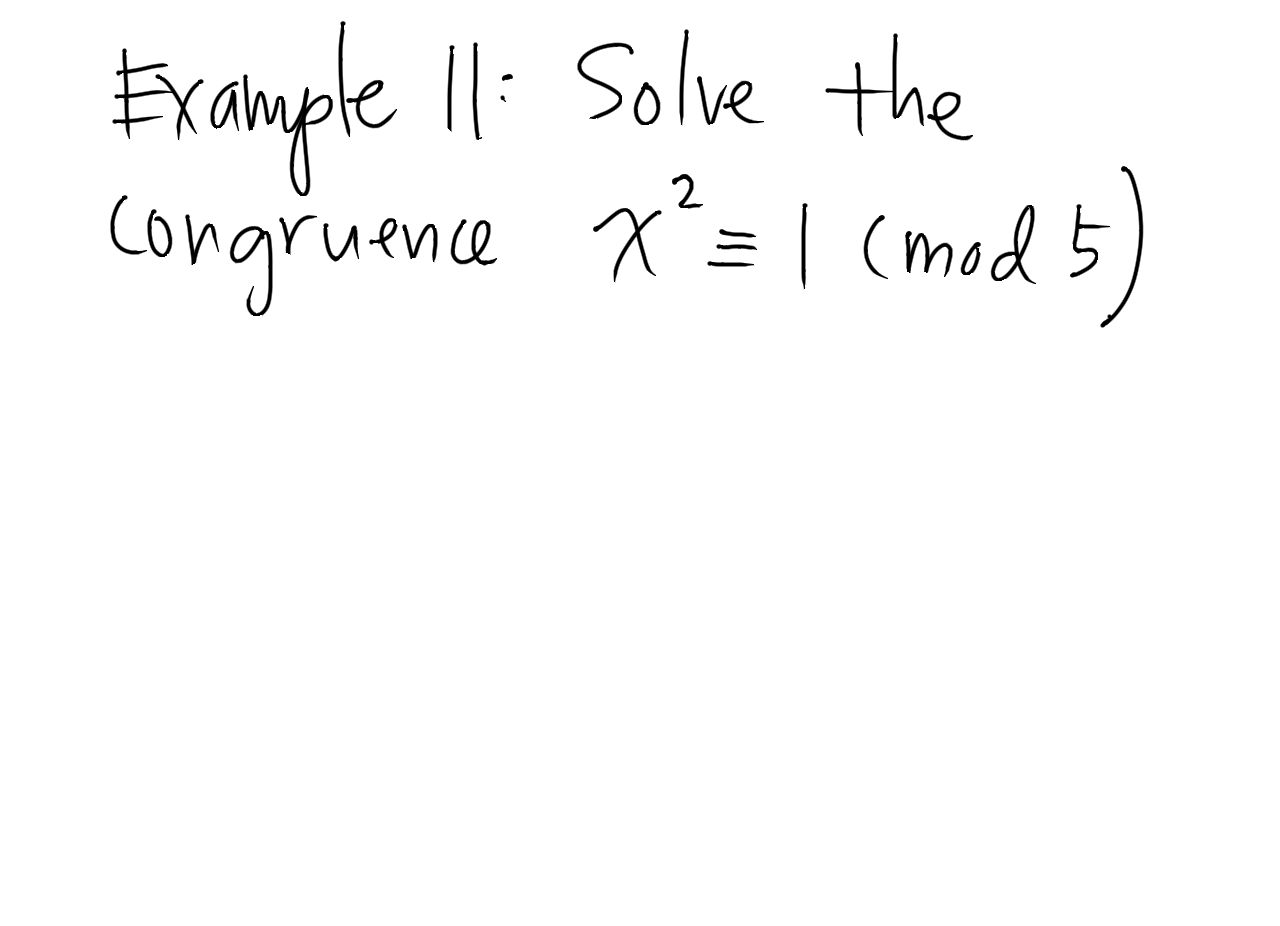 Example 11: Solve the
congruence x² ≡ 1 (mod 5)